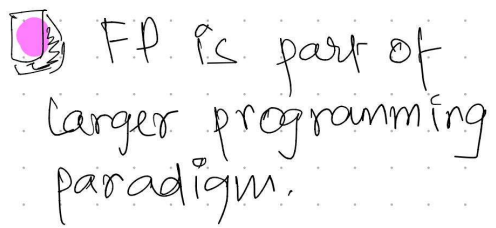 FP is part of
larger programming
paradigm.